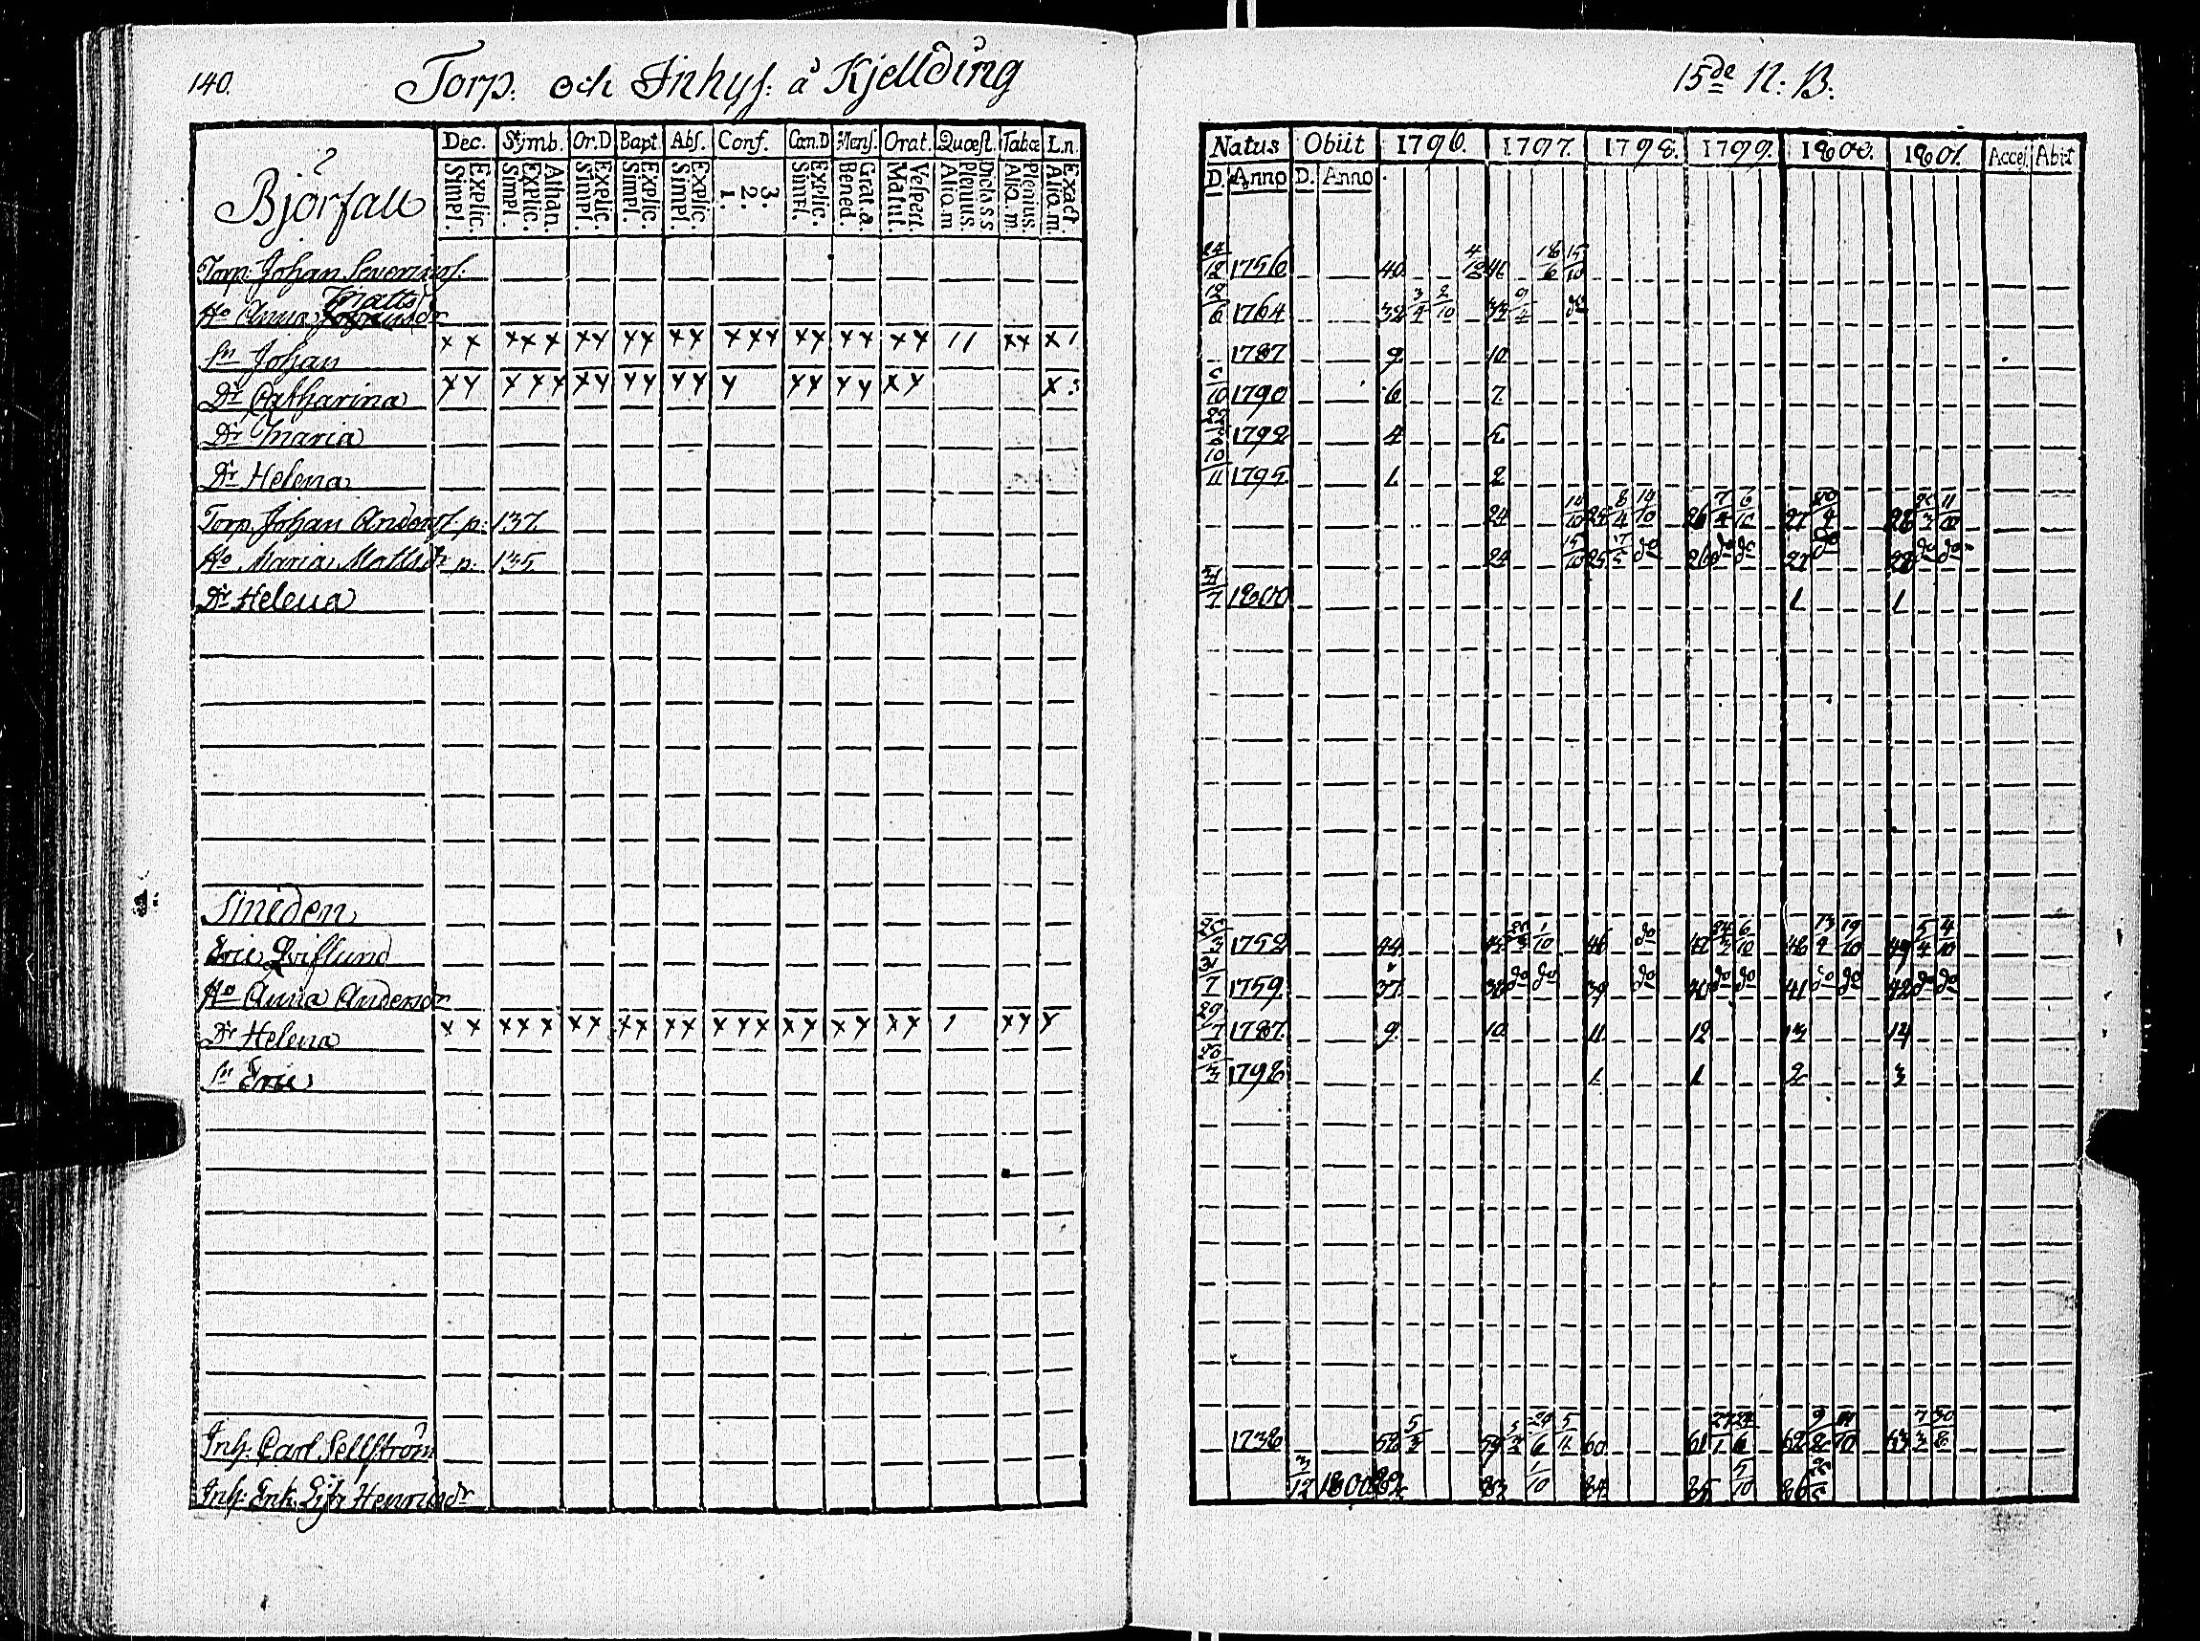 140.
Torp. och Inhys. å Kjellding
Dec. Symb. Or.D Bapt. Abs. Conf. Can.D Mens. Orat. Quæst. Tabæ L.n.
Simpl. Explic. Simpl. Explic. Athan. Simpl. Explic. Simpl. Explic. Simpl. Explic. 1. 2. 3. Simpl. Explic. Bened. Grat.a. Matut. Vespert. Aliq.m Plenius. Dicta s s Aliq.m Plenius Aliq.m. Exact.
Björfall
Torp. Johan Severinss.
Ho Anna Mattsdr
Sn Johan x x x x x x x x x x x x x x x x x x x x x 1 1 x x x 1
Dr Catharina
Dr Maria
Dr Helena
Torp. Johan Anderss. p: 137.
Ho Maria Mattsdr p. 135.
Dr Helena
Smeden
Eric Qvislund
Ho Anna Andersdr
Dr Helena x x x x x x x x x x x x x x x x x x x x x 1 x x x
Sn Eric
Inh. Carl Sellström
Inh. Enk. Lisa Henricsdr
15de N: B:
Natus Obiit 1796. 1797. 1798. 1799. 1800. 1801. Accej. Abiit
D. Anno D. Anno
1756 40. 4/12 41 18/6 15/10
12/6 1764 32 3/4 2/10 33 9/4 do
1787 9. 10.
5/10 1790 6. 7.
1792 4. 5.
10/11 1795 1. 2
24 14/10 25 8/4 14/10 26 7/4 6/10 27 28 11/10
24 15/10 25 do 26 do do 27 do 28 do do
31/7 1800 1 1
1752 44. 45 1/10 46 do 47 24/3 6/10 48 13/4 19/10 49 5/4 4/10
31/7 1759. 37. 38 do do 39 do 40 do do 41 do do 42 do do
29/7 1787. 9. 10. 11. 12 13 14
20/3 1798 1. 1. 2 3
1738 58 5/3 59 24/6 5/11 60 61 62 63
3/12 1800 82. 83 1/10 84 85 5/10 86